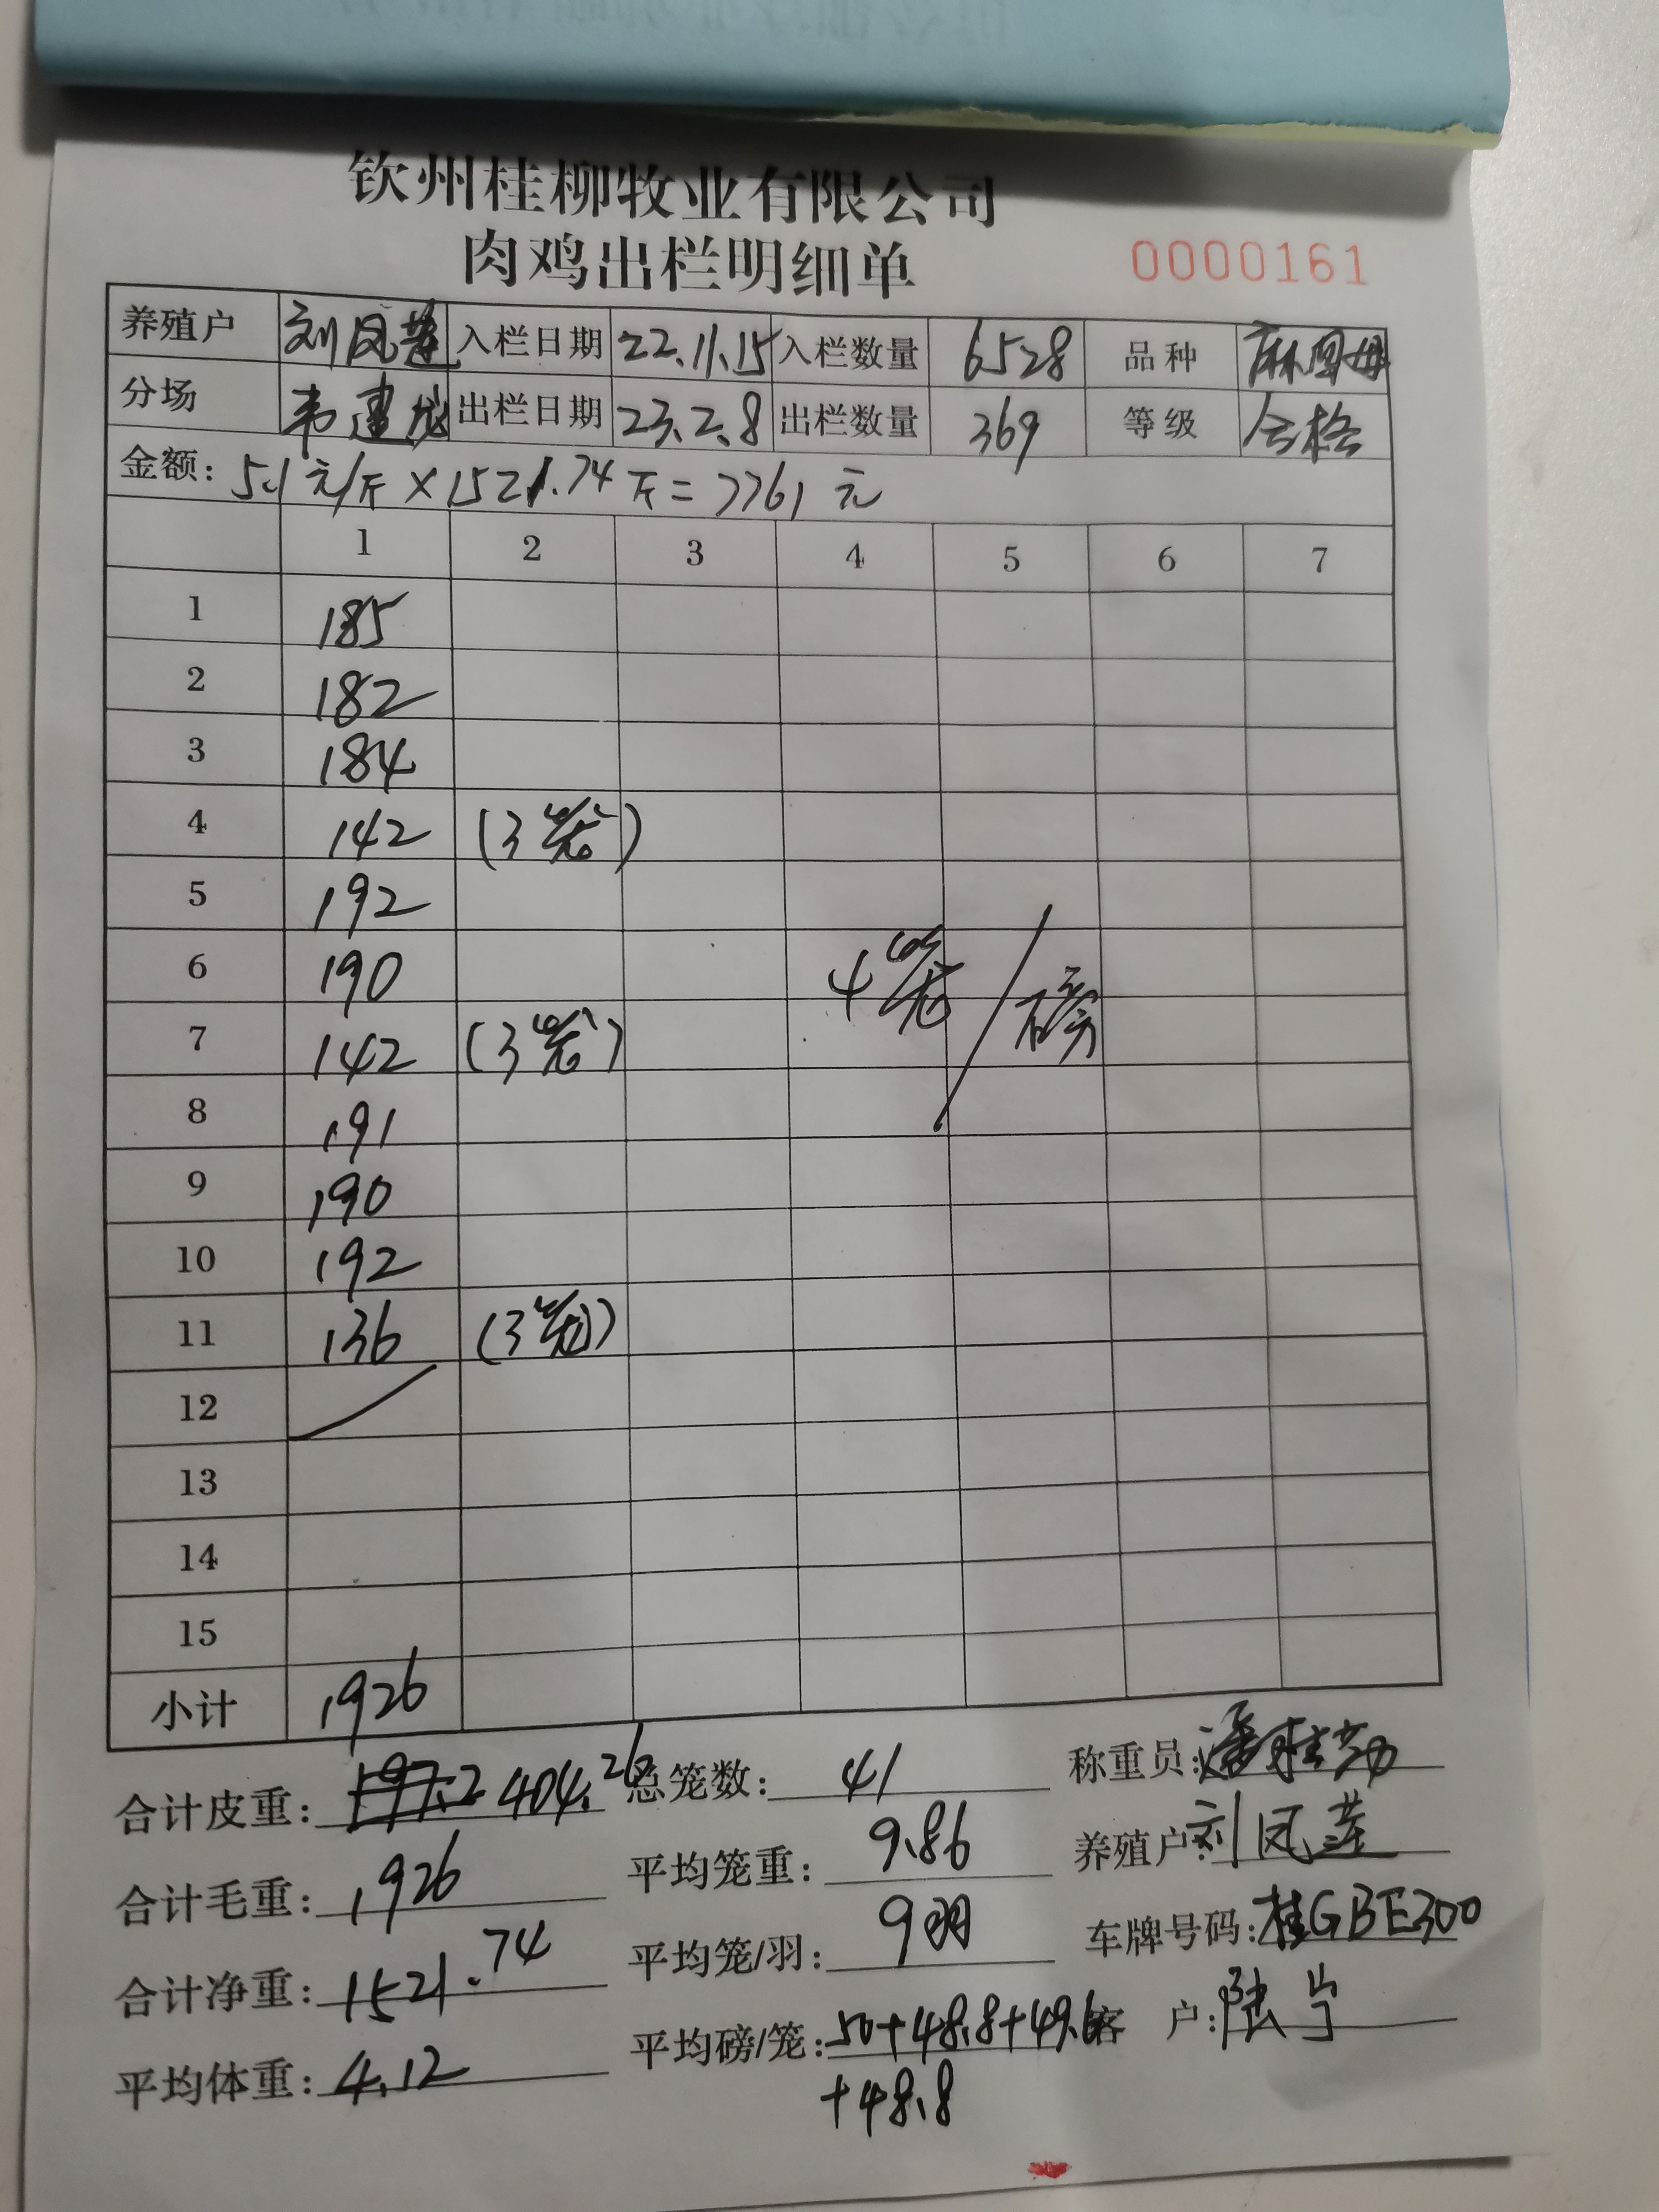 钦州桂柳牧业有限公司
肉鸡出栏明细单 0000161
养殖户 刘凤莲 入栏日期 22.11.15 入栏数量 6528 品种
分场 韦建龙 出栏日期 23.2.8 出栏数量 369 等级 合格
金额: 5.1元/斤×1521.74斤=7761元
1 2 3 4 5 6 7
1 185
2 182
3 184
4 142 (3笼)
5 192
6 190 4笼/磅
7 142 (3笼)
8 191
9 190
10 192
11 136 (3笼)
12
13
14
15
小计 1926
合计皮重: 404.26 总笼数: 41 称重员:
合计毛重: 1926 平均笼重: 9.86 养殖户: 刘凤莲
合计净重: 1521.74 平均笼/羽: 9羽 车牌号码: 桂GBE300
平均体重: 4.12 平均磅/笼: 50+48.8+49.6 客户: 陆宁
+48.8